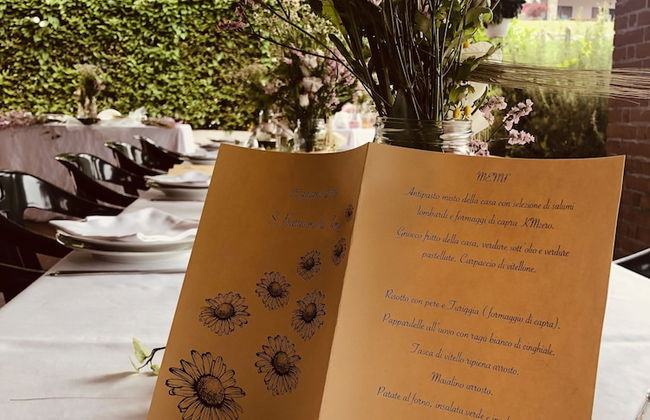 MENU
Antipasto misto della casa con selezione di salumi
lombardi e formaggi di capra KMzero.
Gnocco fritto della casa, verdure sott'olio e verdure
pastellate. Carpaccio di vitellone.
Risotto con pere e Turiggia (formaggio di capra).
Pappardelle all'uovo con ragù bianco di cinghiale.
Tasca di vitello ripiena arrosto.
Maialino arrosto.
Patate al forno, insalata verde e